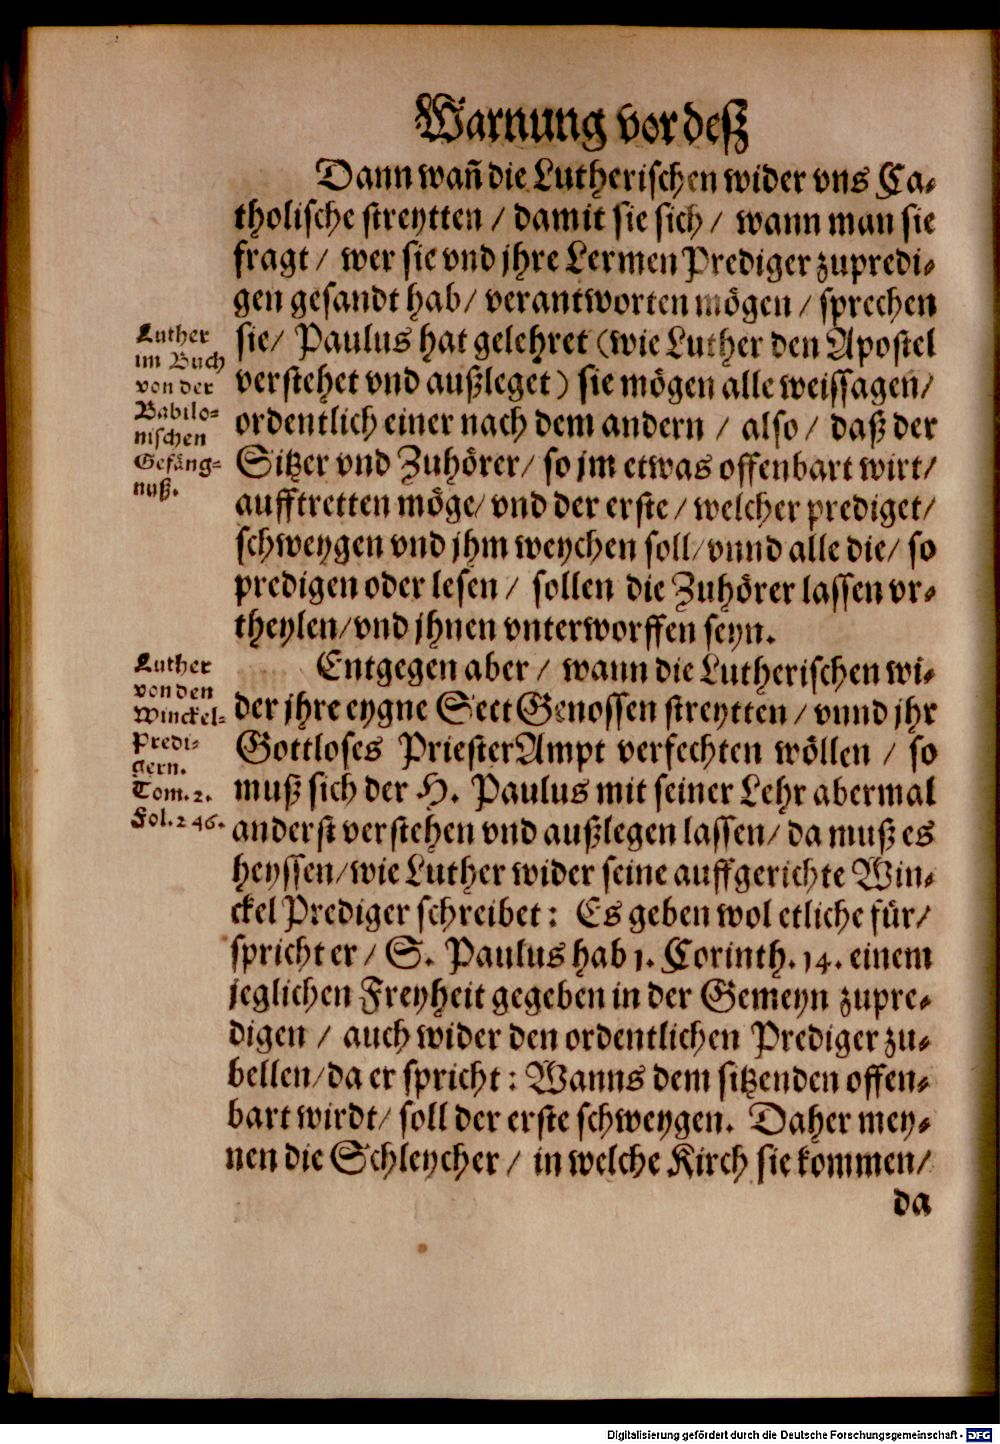 Warnung vor deß
Dann wañ die Lutherischen wider vns Ca-
tholische streytten / damit sie sich / wann man sie
fragt / wer sie vnd jhre Lermen Prediger zupredi-
gen gesandt hab / verantworten mögen / sprechen
sie / Paulus hat gelehret (wie Luther den Apostel
verstehet vnd außleget) sie mögen alle weissagen /
ordentlich einer nach dem andern / also / daß der
Sitzer vnd Zuhörer / so jm etwas offenbart wirt /
aufftretten möge / vnd der erste / welcher prediget /
schweygen vnd jhm weychen soll / vnnd alle die / so
predigen oder lesen / sollen die Zuhörer lassen vr-
theylen / vnd jhnen vnterworffen seyn.
Luther
im Buch
von der
Babilo-
nischen
Gefäng-
nuß.
Entgegen aber / wann die Lutherischen wi-
der jhre eygne Sect Genossen streytten / vnnd jhr
Gottloses PriesterAmpt verfechten wöllen / so
muß sich der H. Paulus mit seiner Lehr abermal
anderst verstehen vnd außlegen lassen / da muß es
heyssen / wie Luther wider seine auffgerichte Win-
ckel Prediger schreibet: Es geben wol etliche für /
spricht er / S. Paulus hab 1. Corinth. 14. einem
jeglichen Freyheit gegeben in der Gemeyn zupre-
digen / auch wider den ordentlichen Prediger zu-
bellen / da er spricht: Wanns dem sitzenden offen-
bart wirdt / soll der erste schweygen. Daher mey-
nen die Schleycher / in welche Kirch sie kommen /
da
Luther
von den
Winckel-
Predi-
gern.
Tom. 2.
Fol. 246.
Digitalisierung gefördert durch die Deutsche Forschungsgemeinschaft - DFG